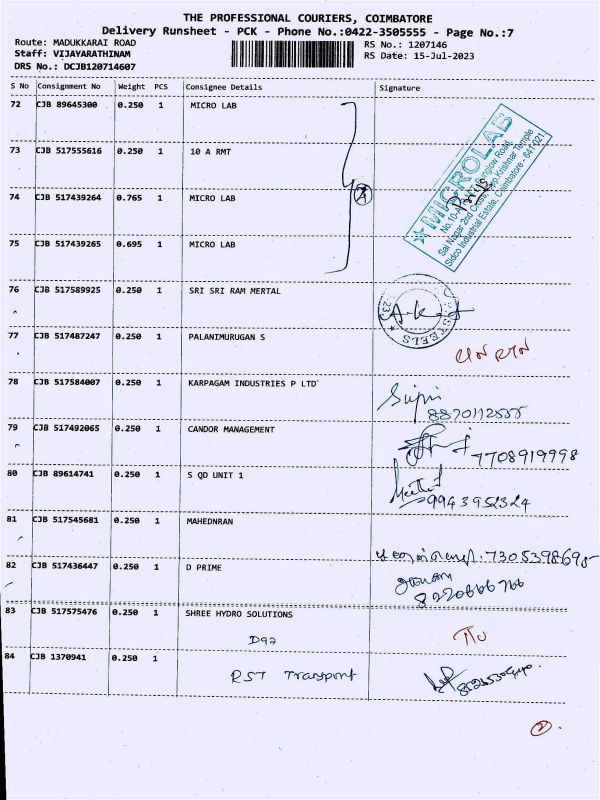 THE PROFESSIONAL COURIERS, COIMBATORE
Delivery Runsheet - PCK - Phone No.:0422-3505555 - Page No.:7
Route: MADUKKARAI ROAD
RS No.: 1207146
Staff: VIJAYARATHINAM
RS Date: 15-Jul-2023
DRS No.: DCJB120714607
S No Consignment No Weight PCS Consignee Details Signature
72 CJB 89645300 0.250 1 MICRO LAB
73 CJB 517555616 0.250 1 10 A RMT
74 CJB 517439264 0.765 1 MICRO LAB
75 CJB 517439265 0.695 1 MICRO LAB
A
★ MICROLAB
Sai Nagar 2nd Cross, Opp. Krishnar Temple
Sidco Industrial Estate, Coimbatore - 641 021
76 CJB 517589925 0.250 1 SRI SRI RAM MERTAL
STEELS
77 CJB 517487247 0.250 1 PALANIMURUGAN S
78 CJB 517584007 0.250 1 KARPAGAM INDUSTRIES P LTD
79 CJB 517492065 0.250 1 CANDOR MANAGEMENT
7708919998
80 CJB 89614741 0.250 1 S QD UNIT 1
9943952324
81 CJB 517545681 0.250 1 MAHEDNRAN
82 CJB 517436447 0.250 1 D PRIME
83 CJB 517575476 0.250 1 SHREE HYDRO SOLUTIONS
84 CJB 1370941 0.250 1
RST Transport